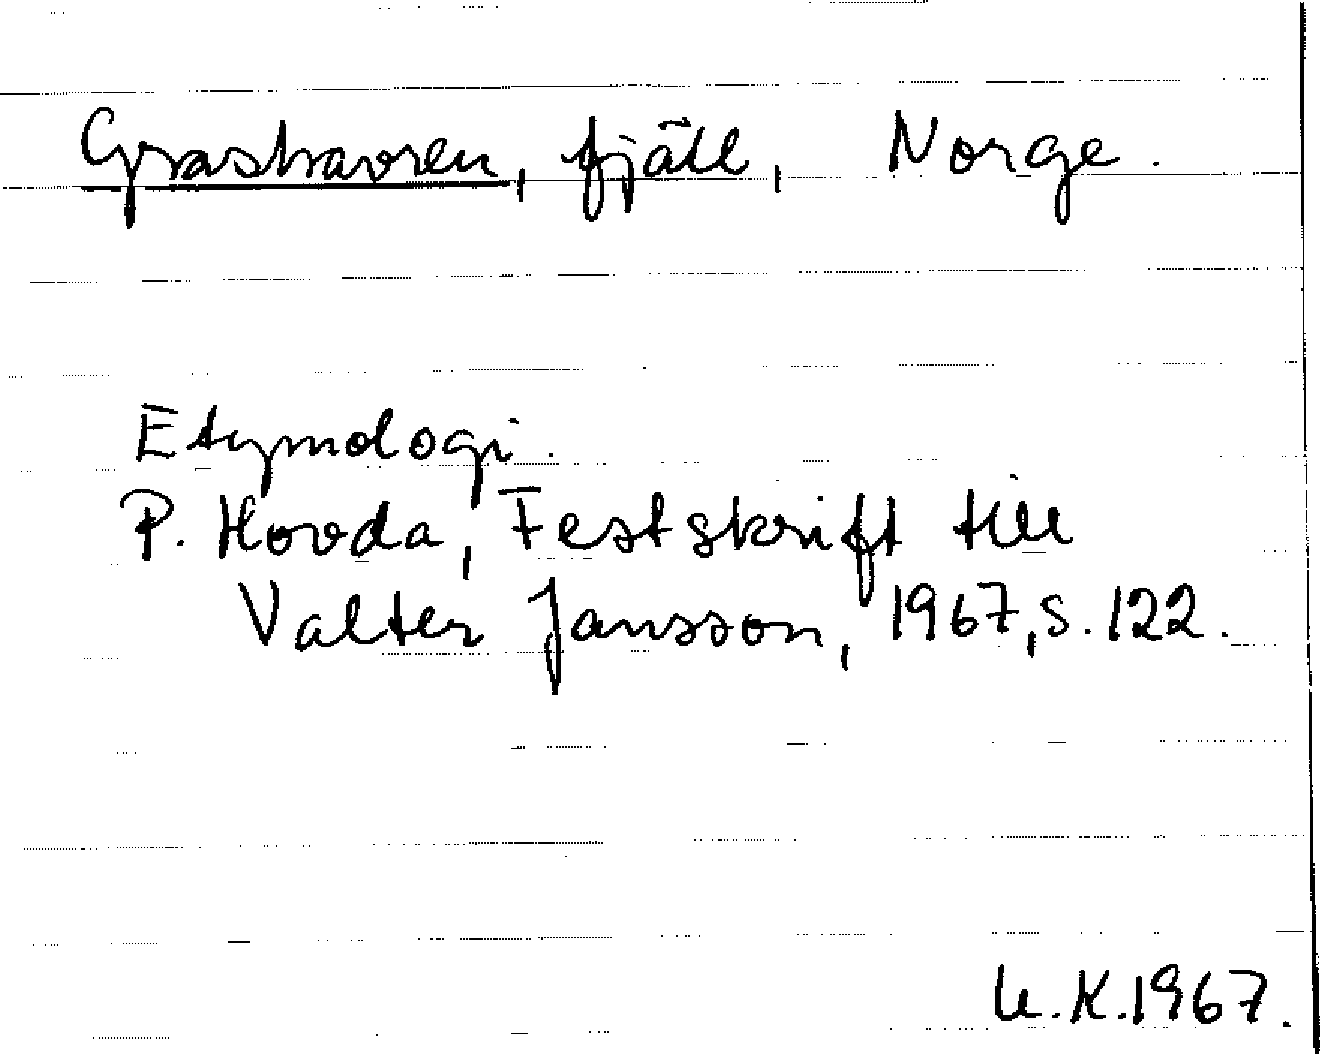 Grashavren, fjäll, Norge.
Etymologi.
P. Hovda, Festskrift till
Valter Jansson, 1967, s. 122.
U.K. 1967.